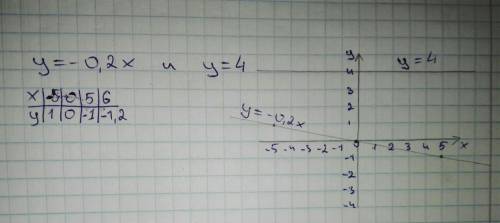 y=-0,2x и y=4
x | -5 | 0 | 5 | 6
y | 1 | 0 | -1 | -1,2
y
y=4
4
3
2
1
y=-0,2x
-5 -4 -3 -2 -1 0 1 2 3 4 5 x
-1
-2
-3
-4